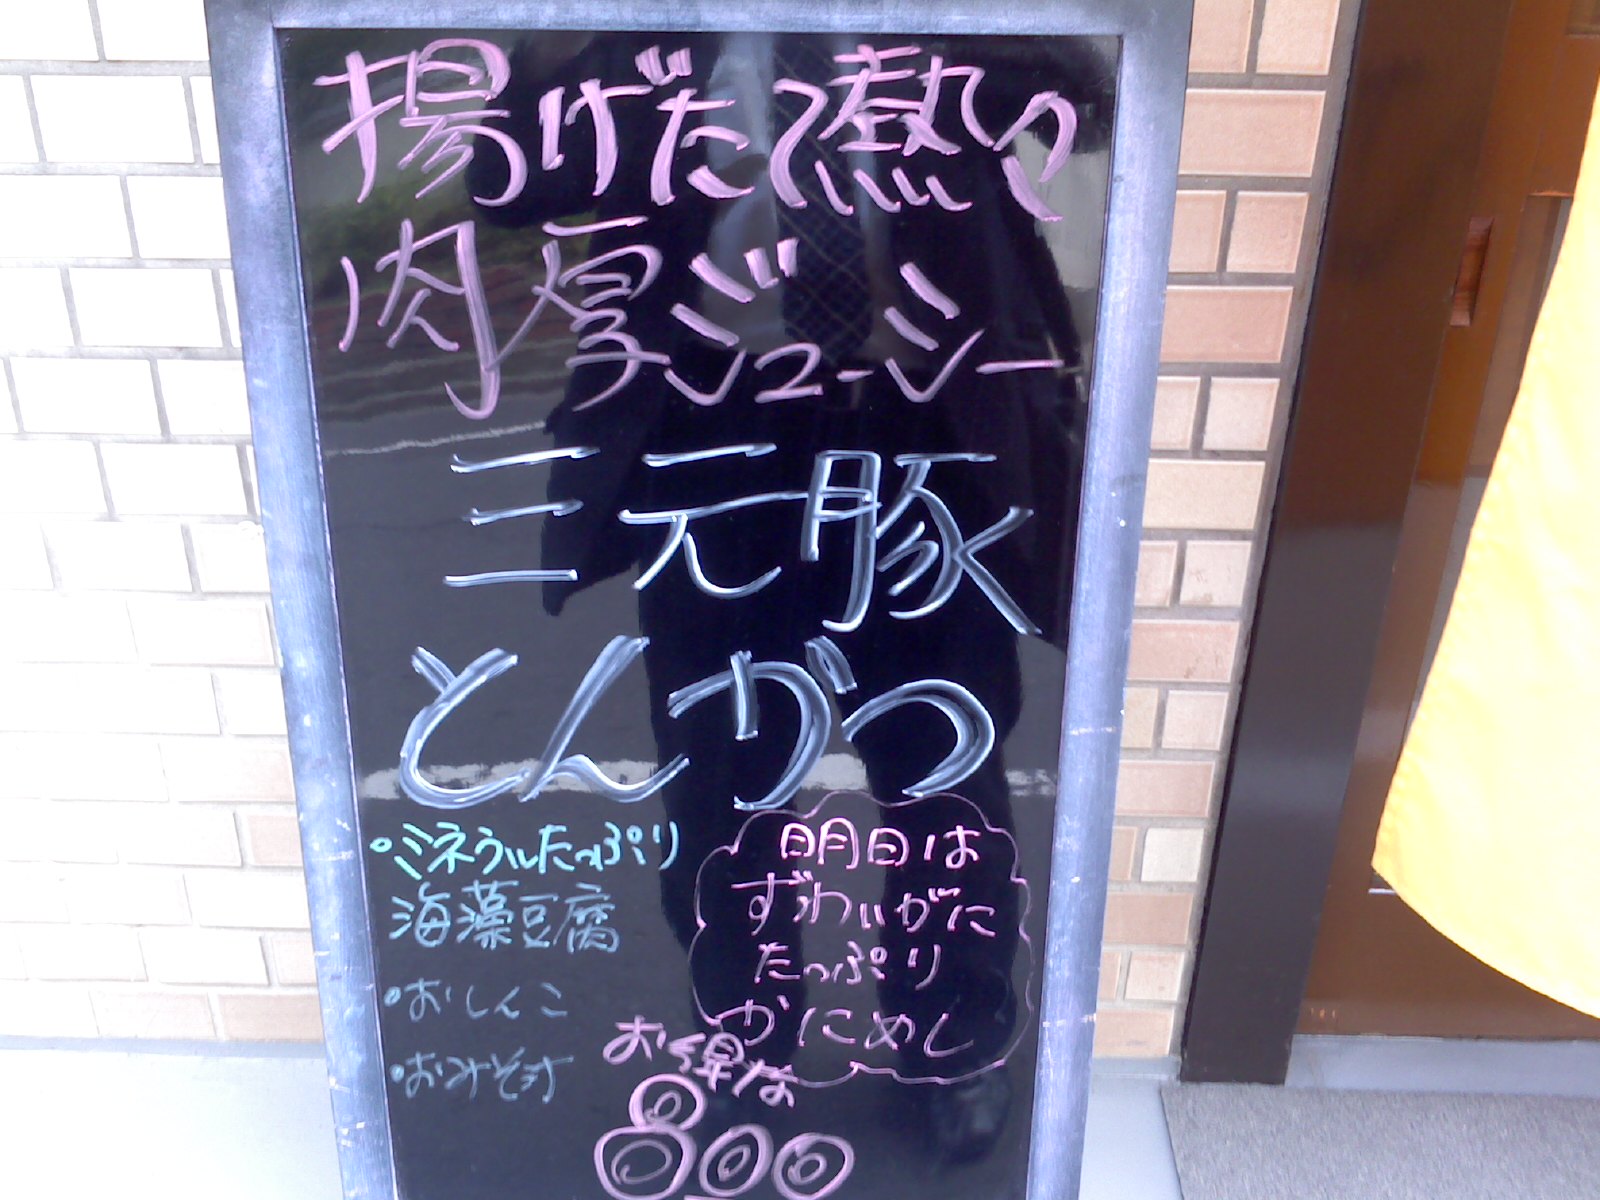 揚げたて熱々
肉厚ジューシー
三元豚
とんかつ
・ミネラルたっぷり
海藻豆腐
・おしんこ
・おみそ汁
明日は
ずわいがに
たっぷり
かにめし
お得な
800